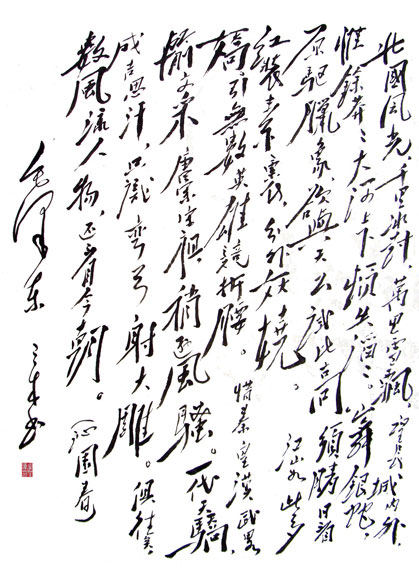 北國風光千里冰封萬里雪飄。望長城内外
惟餘莽〻大河上下頓失滔〻。山舞銀蛇，
原驅臘象欲與天公試比高須晴日看
红裝素裹，分外妖嬈。江山如此多
嬌，引無數英雄競折腰。惜秦皇漢武略
輸文采唐宗宋祖稍遜風騷。一代天驕，
成吉思汗，只識彎弓射大雕。俱往矣，
數風流人物，还看今朝。沁園春
毛泽东